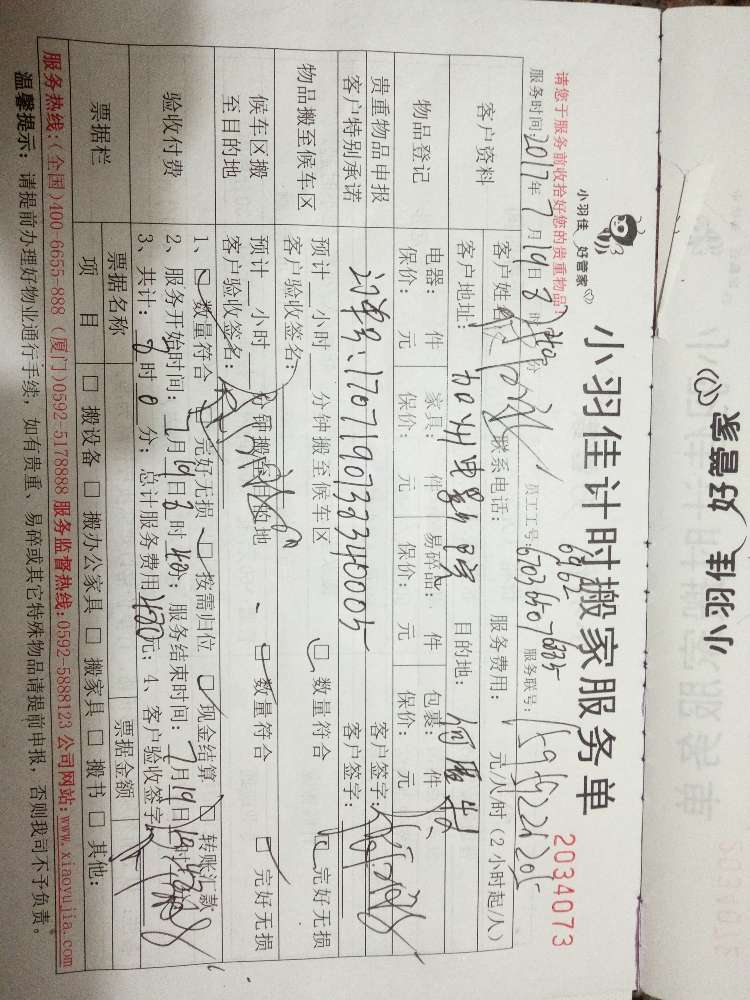 小羽佳 好管家
小羽佳 好管家
小羽佳计时搬家服务单
2034073
请您于服务前收拾好您的贵重物品!
服务时间:2017年7月19日8时 分
员工工号:
服务联号:
客户资料
客户姓名:
联系电话:
服务费用: 元/人/时(2小时起/人)
客户地址:加州电影院
目的地:
物品登记
电器: 件 家具: 件 易碎品: 件 包裹: 件
保价: 元 保价: 元 保价: 元 保价: 元
贵重物品申报
客户特别承诺
订单号:170719073833400005
客户签字:
客户签字:
物品搬至候车区
预计__小时__分钟搬至候车区 □数量符合 □完好无损
客户验收签名:
候车区搬
至目的地
预计__小时__分钟搬至目的地 □数量符合 □完好无损
客户验收签名:
验收付费
1、□数量符合 □完好无损 □按需归位 □现金结算 □转账汇款
2、服务开始时间:7月19日8时40分;服务结束时间:7月19日 时 分
3、共计: 时0分;总计服务费用 元;4、客户验收签字:
票据栏
票据名称
票据金额
项 目 □搬设备 □搬办公家具 □搬家具 □搬书 □其他:
服务热线:(全国)400-6655-888 (厦门)0592-5178888 服务监督热线:0592-5888123 公司网站:www.xiaoyujia.com
温馨提示:请提前办理好物业通行手续,如有贵重、易碎或其它特殊物品请提前申报,否则我司不予负责。